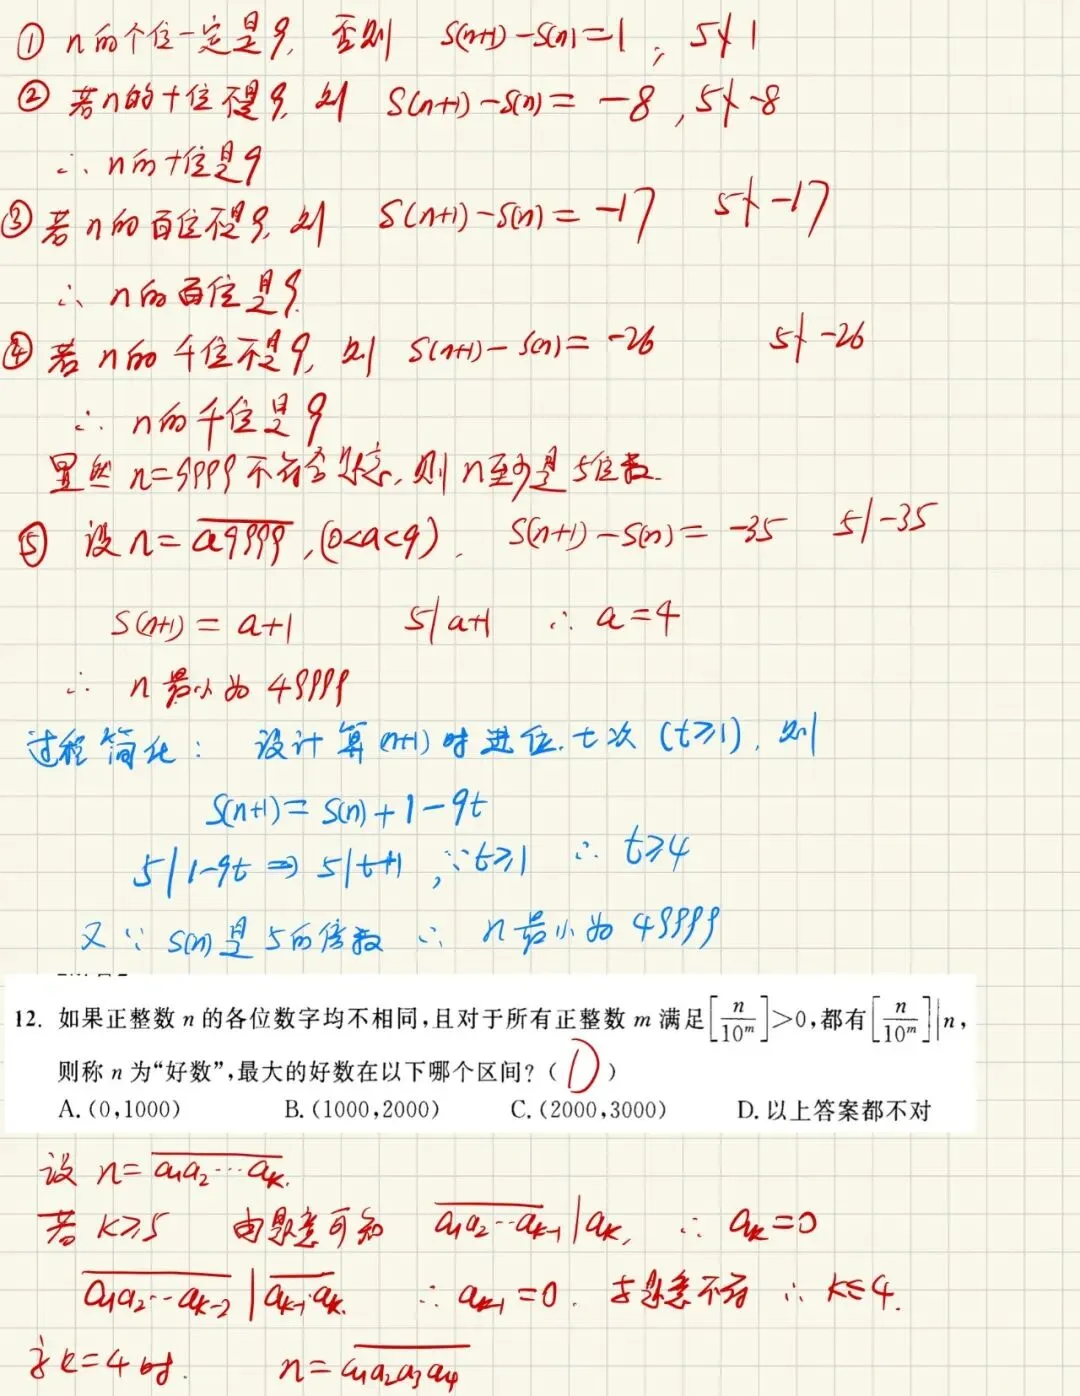 ① n的个位一定是9, 否则 S(n+1)-S(n)=1, 5∤1
② 若n的十位不是9, 则 S(n+1)-S(n)= -8, 5∤-8
∴ n的十位是9
③ 若n的百位不是9, 则 S(n+1)-S(n)= -17 5∤-17
∴ n的百位是9
④ 若n的千位不是9, 则 S(n+1)-S(n)= -26 5∤-26
∴ n的千位是9
显然 n=9999不符合题意, 则n至少是5位数.
⑤ 设n=\overline{a9999}, (0<a<9), S(n+1)-S(n)= -35 5|-35
S(n+1)= a+1 5|a+1 ∴ a=4
∴ n最小为 49999
过程简化: 设计算(n+1)时进位t次 (t≥1), 则
S(n+1)= S(n)+1-9t
5|1-9t ⇒ 5|t+1, ∵t≥1 ∴ t≥4
又∵ S(n)是5的倍数 ∴ n最小为 49999
12. 如果正整数 n 的各位数字均不相同,且对于所有正整数 m 满足[n/10^m]>0,都有[n/10^m]|n,
则称 n 为“好数”,最大的好数在以下哪个区间?( D )
A. (0,1000) B. (1000,2000) C. (2000,3000) D. 以上答案都不对
设 n= \overline{a₁a₂…aₖ}.
若 k≥5 由题意可知 \overline{a₁a₂…aₖ₋₁}|aₖ, ∴ aₖ=0
\overline{a₁a₂…aₖ₋₂}|\overline{aₖ₋₁aₖ}. ∴ aₖ₋₁=0. 与题意不符 ∴ k≤4.
当k=4时. n= \overline{a₁a₂a₃a₄}